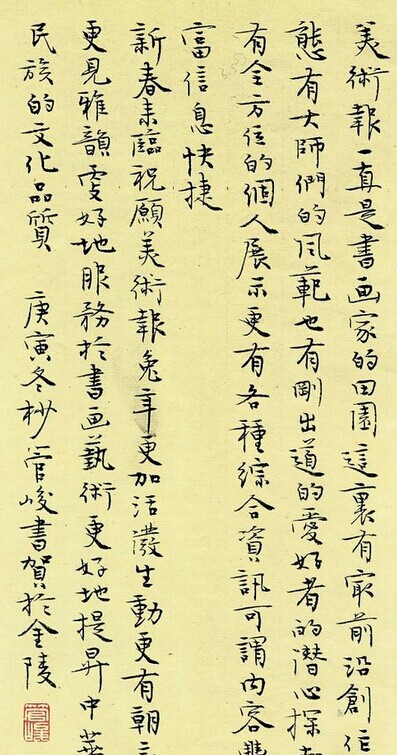 美術報一直是書画家的田園這裏有最前沿創作
態有大師們的風範也有剛出道的愛好者的潜心探
有全方位的個人展示更有各種綜合資訊可謂内容豐
富信息快捷
新春来臨祝願美術報兔年更加活潑生動更有朝
更見雅韻更好地服務於書画藝術更好地提昇中華
民族的文化品質 庚寅冬杪管峻書賀於金陵